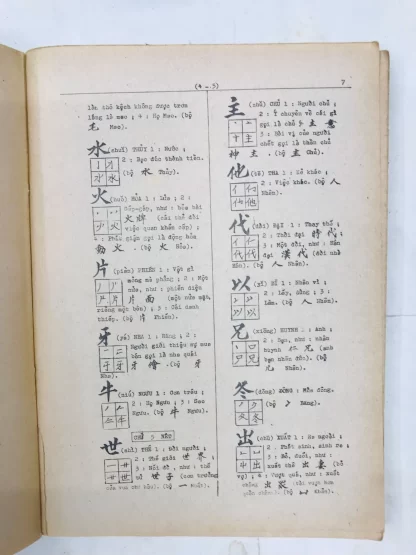 (4 - 5)
7
lần chỗ kệnh không được trơn
lông là mao ; 4 : Họ Mao. (bộ
毛 Mao).
水 (shuǐ) THỦY 1 : Nước ;
2 : Sao thành tiền.
(bộ 水 Thủy).
火 (huǒ) HỎA 1 : Lửa ; 2 :
Gấp-gáp, như : hỏa bài
火牌 (cái thẻ đòi
việc quan khẩn cấp) ;
火 (bộ 火 Hỏa).
片 (piàn) PHIẾN 1 : Vật gì
mỏng mà phẳng ; 2 : Một
nửa, như : phiến diện
片面 (một nửa mặt,
riêng một bên) ; 3 : Cái danh
thiếp. (bộ 片 Phiến).
牙 (yá) NHA 1 : Răng ; 2 :
Người giới thiệu sự mua
bán gọi là nha quái
牙儈 . (bộ 牙
Nha).
牛 (niú) NGƯU 1 : Con trâu ;
2 : Họ Ngưu ; 3 : Sao
Ngưu. (bộ 牛 Ngưu).
CHỮ 5 NÉT
世 (shì) THẾ 1 : Đời người ;
2 : Thế giới 世界 ;
3 : Nối đời, như : thế
tử 世子 (con trưởng
(bộ 一 Nhất).
主 (zhǔ) CHỦ 1 : Người chủ ;
2 : Ý chuyên về cái gì
gọi là chủ ý 主意
3 : Bài vị của người
chết gọi là thần chủ
神主 . (bộ 丶 Chủ).
他 (tā) THA 1 : Kẻ khác ;
2 : Việc khác. (bộ 人
Nhân).
代 (dài) ĐẠI 1 : Thay thế ;
2 : Thời đại 時代 ;
3 : Một đời, như : Hán
đại 漢代 (đời nhà
Hán). (bộ 人 Nhân).
以 (yǐ) DĨ 1 : Nhân vì ;
2 : Lấy, dùng ; 3 :
Làm. (bộ 人 Nhân).
兄 (xiōng) HUYNH 1 : Anh ;
2 : Bạn, như : nhân
huynh 仁兄 (anh
bạn nhân đức). (bộ
儿 Nhân).
冬 (dōng) ĐÔNG : Mùa đông.
(bộ 冫 Băng).
出 (chū) XUẤT 1 : Ra ngoài ;
2 : Phát sinh, sinh ra ;
3 : Bỏ, đuổi, như :
xuất thê 出妻 (bỏ
vợ) ; 4 : Vượt quá, như : xuất
chúng 出眾
(bộ 凵 Khảm).